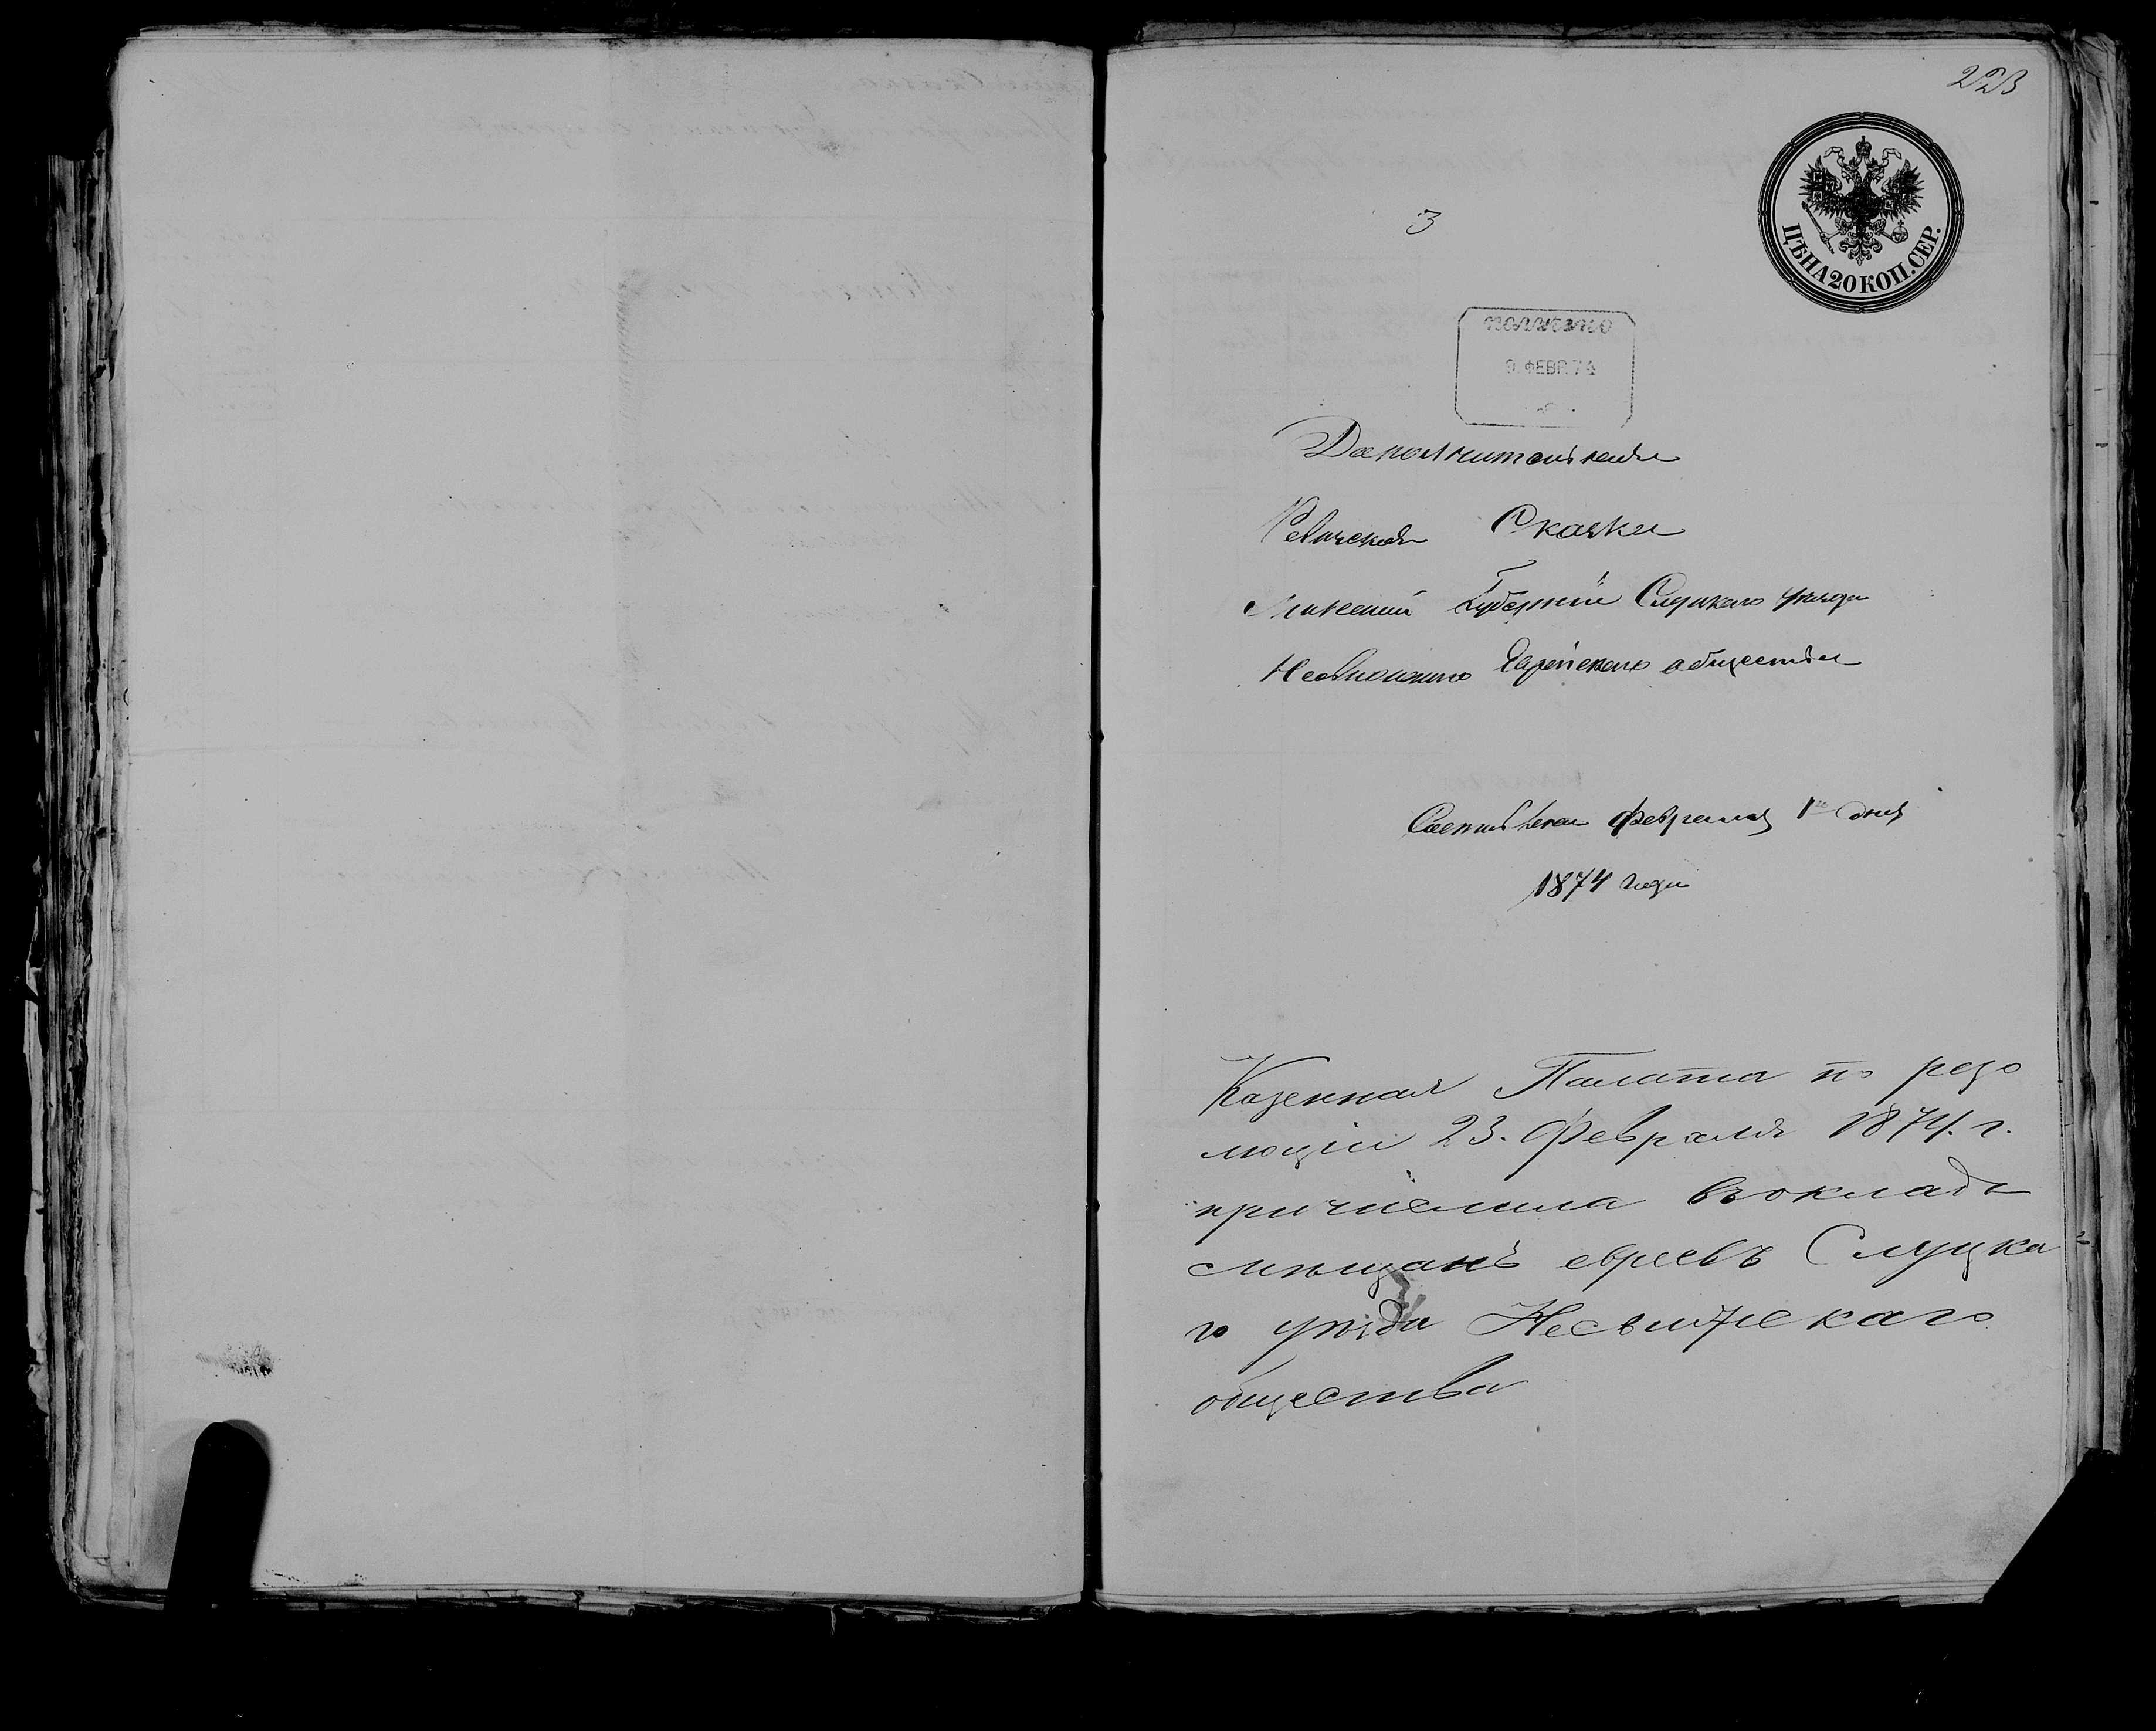 223
ЦѢНА 20 КОП. СЕР.
3
ПОЛУЧЕНО
9. ФЕВР. 74
Дополнительная
Ревизская Сказка
Минской Губернiи Слуцкаго уѣзда
Несвижскаго Еврейскаго общества
Составлена февраля 1го дня
1874 года
Казенная Палата по резо
люцiи 23. Февраля 1874. г.
причислила въ окладъ
мѣщанъ евреевъ Слуцка
го уѣзда Несвижскаго
общества